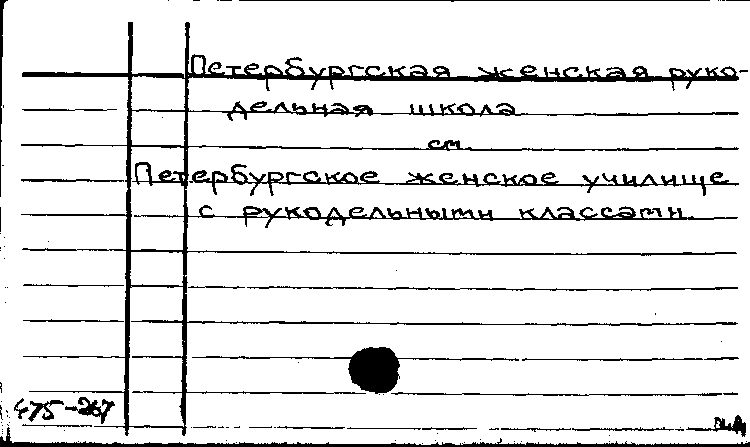 Петербургская женская руко-
дельная школа
см.
Петербургское женское училище
с рукодельными классами.
475-267